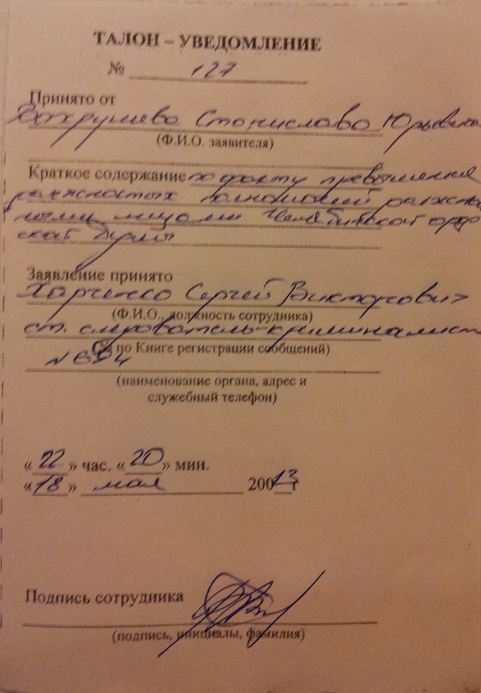 ТАЛОН – УВЕДОМЛЕНИЕ
№ 127
Принято от
Вахрушева Станислава Юрьевича
(Ф.И.О. заявителя)
Краткое содержание по факту превышения
должностных полномочий должно-
стными лицами Челябинской город-
ской Думы
Заявление принято
Харченко Сергей Викторович
(Ф.И.О., должность сотрудника)
ст. следователь-криминалист
(№ по Книге регистрации сообщений)
(наименование органа, адрес и
служебный телефон)
« 22 » час. « 20 » мин.
« 18 » мая 2013 г
Подпись сотрудника
(подпись, инициалы, фамилия)